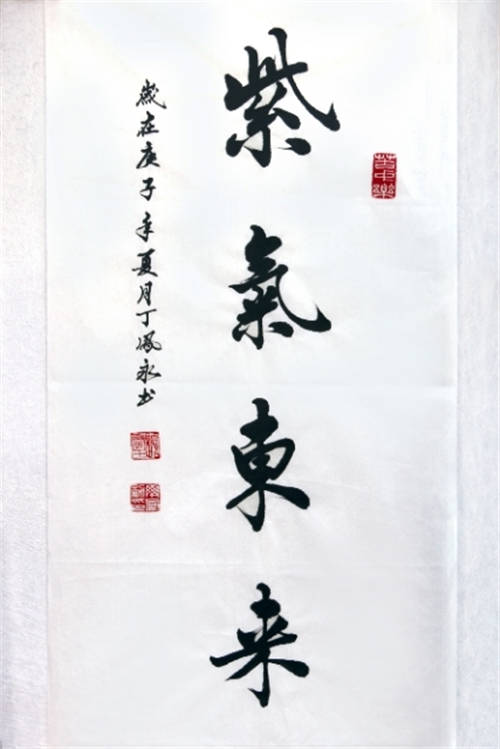 紫氣東来
歲在庚子年夏月丁鳳永书
苦中樂